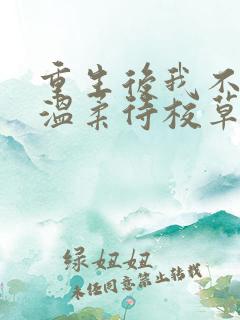 重生后我不
温柔待校草
绿妞妞
未经同意禁止转载